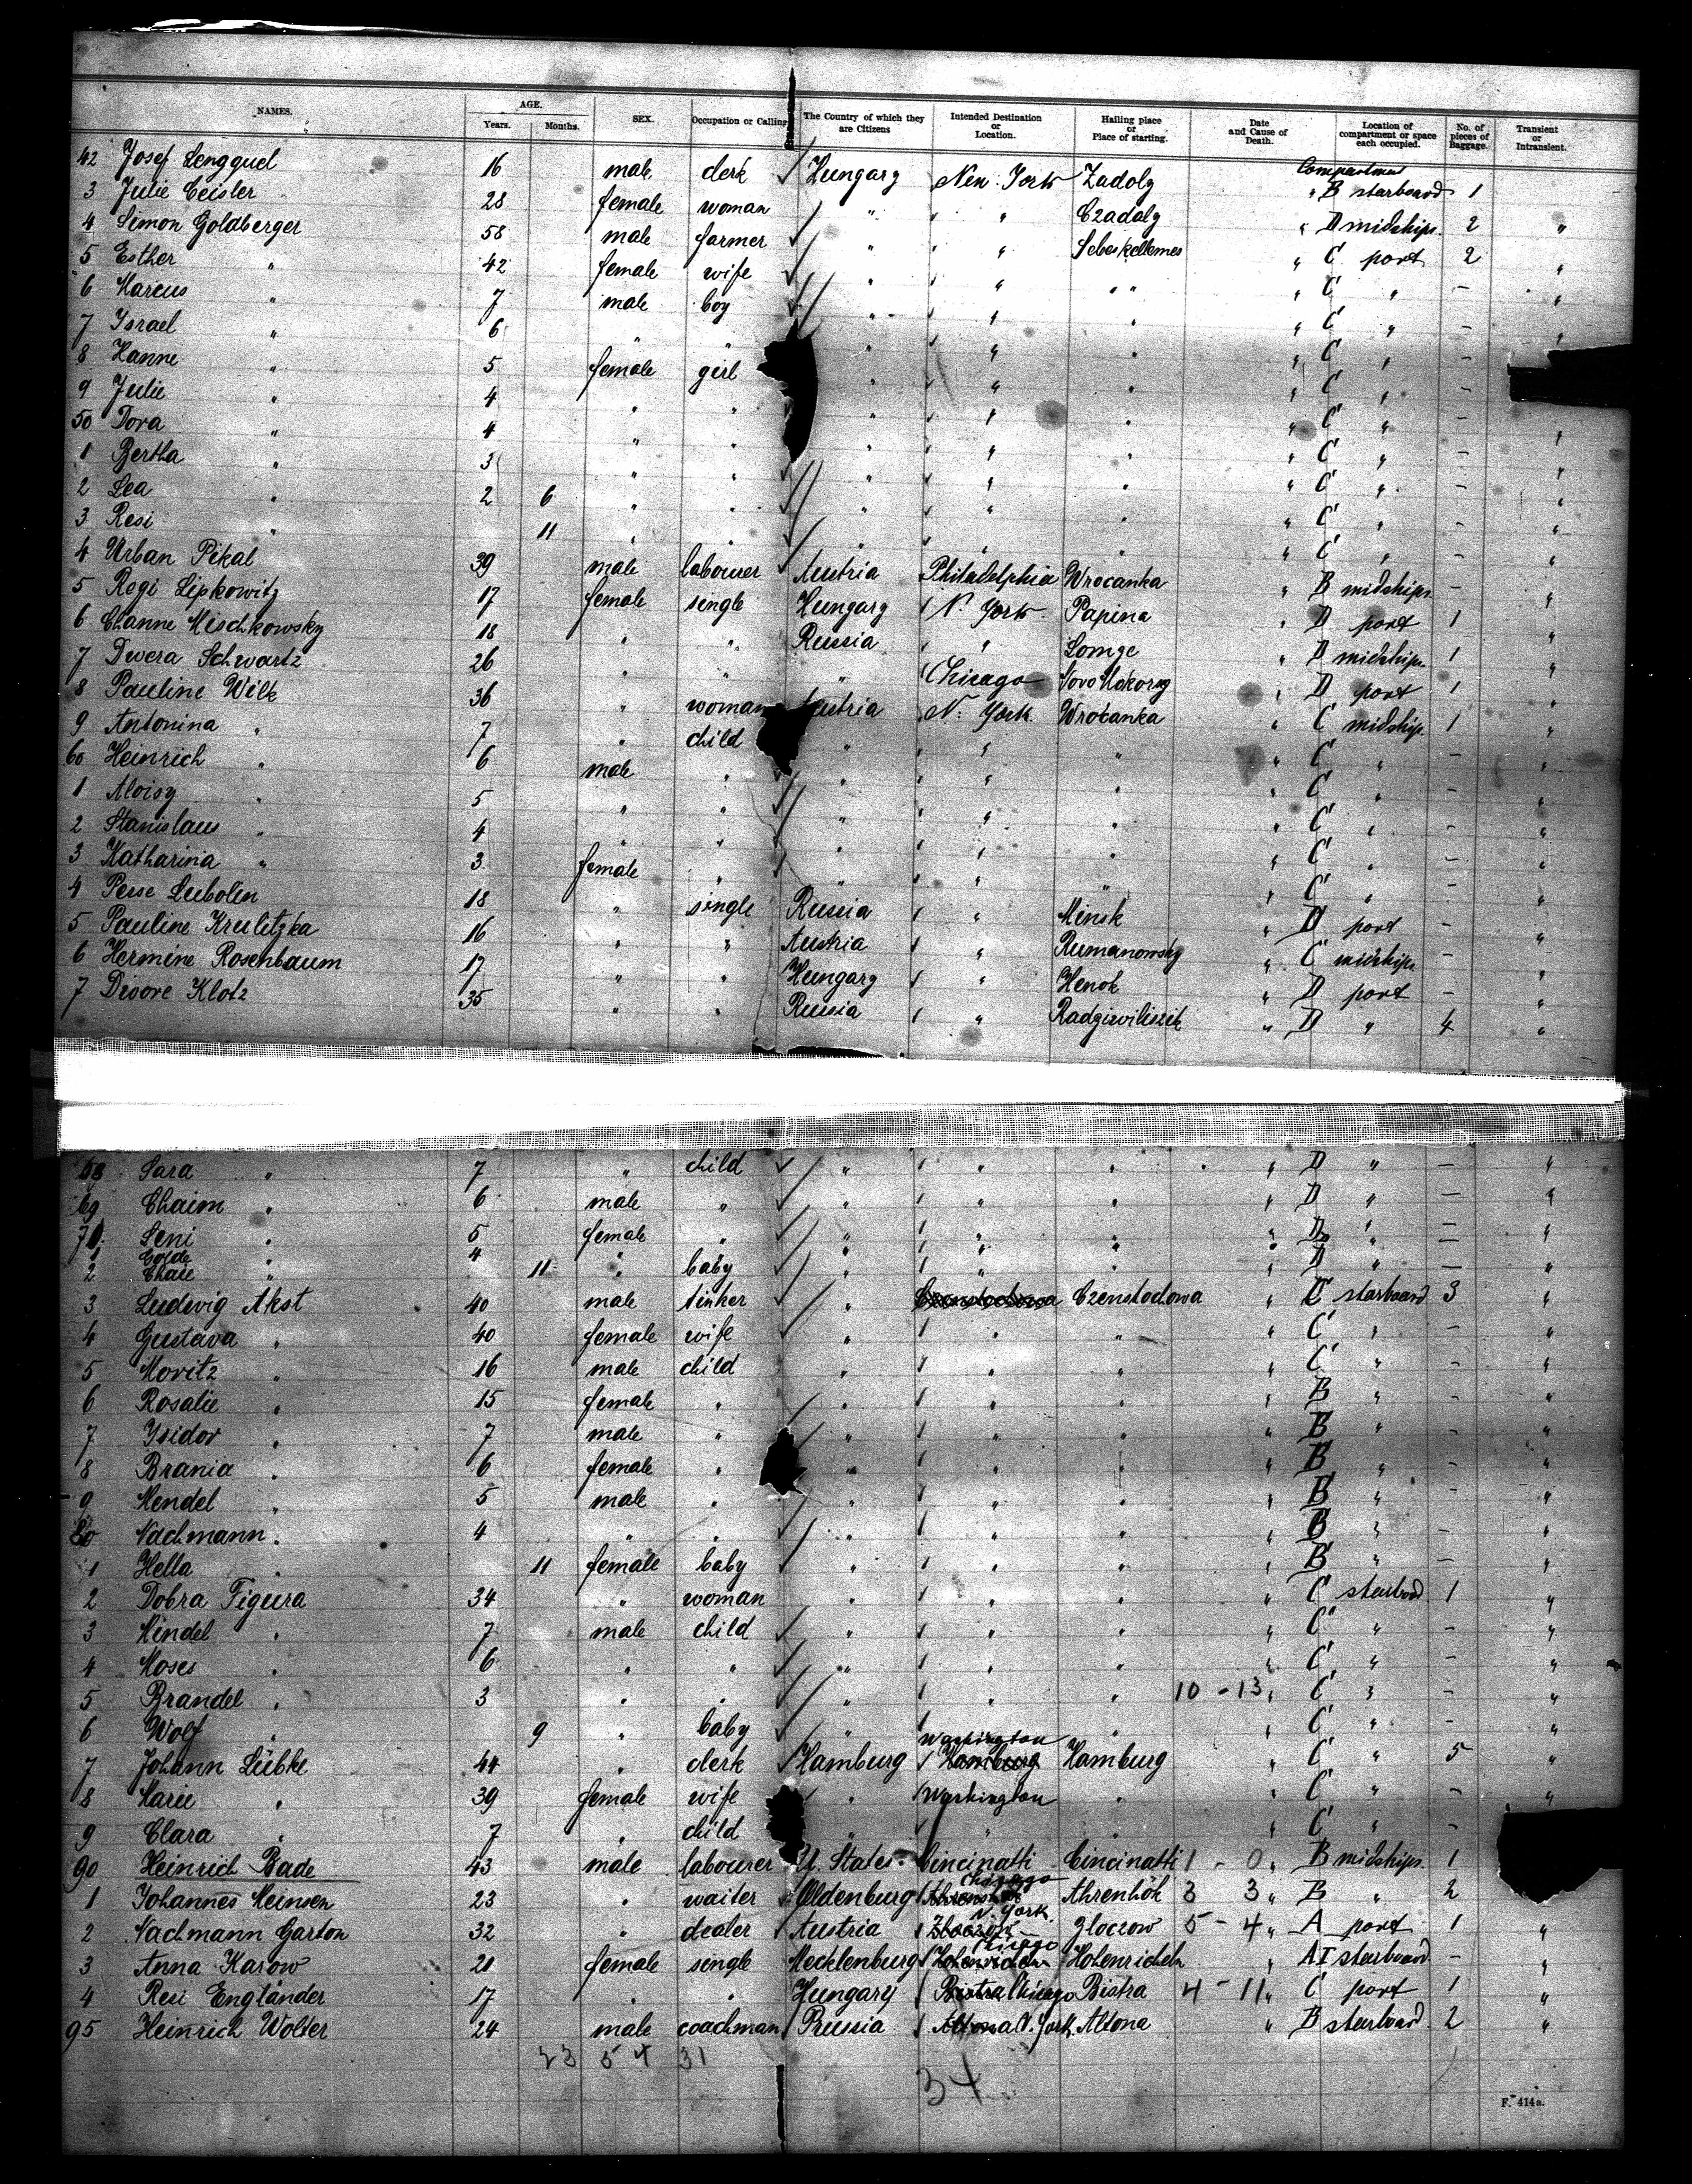 NAMES. AGE. Years. Months. SEX. Occupation or Calling The Country of which they are Citizens Intended Destination or Location. Hailing place or Place of starting. Date and Cause of Death. Location of compartment or space each occupied. No. of pieces of Baggage. Transient or Intransient.
42 Josef Lengquel 16 male clerk Hungary New York Zadoly Compartment B starboard 1
3 Julie Ceisler 28 female woman " " " Czadaly " D midships. 2 "
4 Simon Goldberger 58 male farmer " " " Sebeskellemes " C port 2 "
5 Esther " 42 female wife " " " " " C " - "
6 Marcus " 7 male boy " " " " C " - "
7 Israel " 6 " " " " " " C " - "
8 Hanne " 5 female girl " " " " C " -
9 Julie " 4 " " " " " " C " -
50 Dora " 4 " " " " " " C " - "
1 Bertha " 3 " " " " " " C " - "
2 Lea " 2 6 " " " " " " C " - "
3 Resi " 11 " " " " " " C " - "
4 Urban Pikal 39 male labourer Austria Philadelphia Wrocanka " B midships - "
5 Regi Lipkowitz 17 female single Hungary N. York Papina " D port 1 "
6 Channe Mischkowsky 18 " " Russia " Lomge " D midships 1 "
7 Dwera Schwartz 26 " " " Chicago " D port 1 "
8 Pauline Wilk 36 " woman Austria N. York Wrocanka " C midship. 1 "
9 Antonina " 7 " child " " " " C " - "
60 Heinrich " 6 male " " " " " C " - "
1 Aloisy " 5 " " " " " " C " - "
2 Stanislaus " 4 " " " " " " C " - "
3 Katharina " 3 female " " " " " C " - "
4 Pesse Leibolin 18 " single Russia " Minsk " D port - "
5 Pauline Krulitzka 16 " " Austria " Rumanowsky " C midships - "
6 Hermine Rosenbaum 17 " " Hungary " Henok " D port - "
7 Dwore Klotz 35 " " Russia " Radziwilischk " D " 4 "
68 Sara " 7 " child " " " " D " - "
69 Chaim " 6 male " " " " D " - "
70 Seni " 5 female " " " " " D " - "
1 Golde " 4 " " " " D " -
2 Chaie " 11 " baby " " " " D " - "
3 Ludwig Akst 40 male tinker " Czenstochowa Czenstochowa " C starboard 3 "
4 Gustava " 40 female wife " " " " C " - "
5 Moritz " 16 male child " " " " C " - "
6 Rosalie " 15 female " " " " " B " - "
7 Ysidor " 7 male " " " " " B " - "
8 Brania " 6 female " " " " " B " - "
9 Mendel " 5 male " " " " " B " - "
80 Nachmann " 4 " " " " " " B " - "
1 Hella " 11 female baby " " " " B " - "
2 Dobra Figura 34 " woman " " " " C starbord 1 "
3 Mindel " 7 male child " " " " C " - "
4 Moses " 6 " " " " " " C " - "
5 Brandel " 3 " " " " " 10 - 13 " C " - "
6 Wolf " 9 " baby " " " " C " - "
7 Johann Lübke 44 " clerk Hamburg Hamburg Washington Hamburg " C " 5 "
8 Marie " 39 female wife " Washington " " C " - "
9 Clara " 7 " child " " " " C " -
90 Heinrich Bade 43 male labourer U. States Cincinatti Cincinatti 1 - 0 " B midships 1
1 Johannes Meinsen 23 " waiter Oldenburg Chicago Ahrenhök 3 3 " B " 2
2 Nachmann Garton 32 " dealer Austria Zloczow N. York. Zloczow 5 - 4 " A port 1 "
3 Anna Karow 21 female single Mecklenburg Chicago Hohenricheln " A I starboard - "
4 Resi Engländer 17 " " Hungary Bistra Chicago Bistra 4 - 11 " C port 1 "
95 Heinrich Wolter 24 male coachman Prussia Altona N. York. Altona " B starboard 2 "
23 54 31
34
F. 414a.